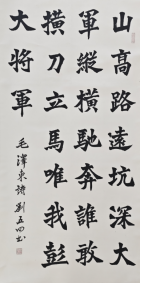 山高路遠坑深大
軍縱橫馳奔誰敢
橫刀立馬唯我彭
大將軍
毛澤東詩